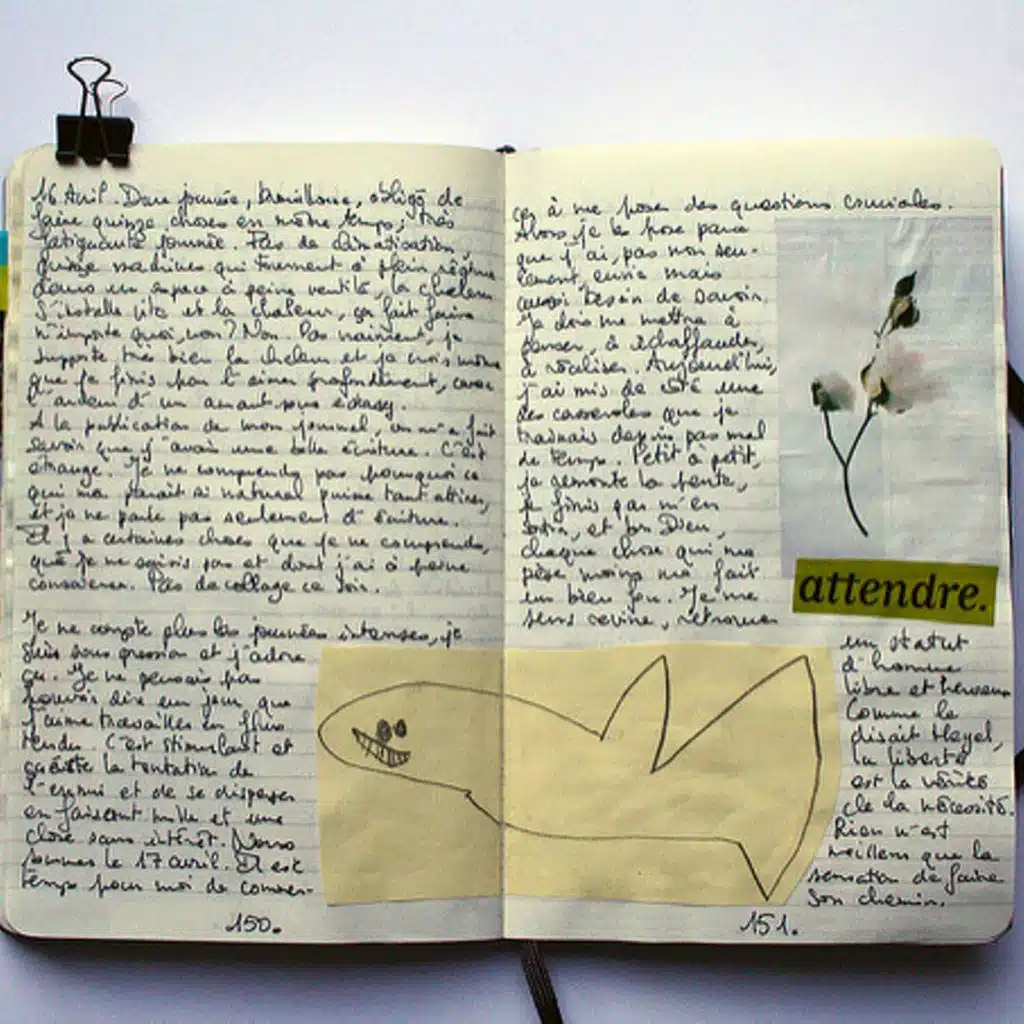 16 Avril. Dure journée, brouillonne, obligé de
faire quinze choses en même temps; très
fatiguante journée. Pas de climatisation,
quinze machines qui tournent à plein régime
dans un espace à peine ventilé, la chaleur
s'installe vite et la chaleur, ça fait faire
n'importe quoi, non? Non. Pas vraiment, je
supporte très bien la chaleur et je crois même
que je finis par l'aimer profondément, avec
l'ardeur d'un amant sous
A la publication de mon journal, on m'a fait
savoir que j'avais une belle écriture. C'est
étrange. Je ne comprends pas pourquoi ce
qui me paraît si naturel puisse tant attirer,
et je ne parle pas seulement d'écriture.
Il y a certaines choses que je ne comprends,
que je ne saisis pas et dont j'ai à peine
conscience. Pas de collage ce soir.
Je ne compte plus les journées intenses, je
suis sous pression et j'adore
ça. Je ne pensais pas
pouvoir dire un jour que
j'aime travailler en flux
tendu. C'est stimulant et
la tentation de
l'ennui et de se disperser
en faisant mille et une
chose sans intérêt. Nous
sommes le 17 avril. Il est
temps pour moi de commen-
150.
cer à me poser des questions cruciales.
Alors je les pose parce
que j'ai, pas non seu-
lement, envie mais
aussi besoin de savoir.
Je dois me mettre à
penser, à échaffauder,
à réaliser. Aujourd'hui,
j'ai mis de côté une
des casseroles que je
trainais depuis pas mal
de temps. Petit à petit,
je remonte la pente,
je finis par m'en
sortir, et bon Dieu,
chaque chose qui me
pèse moins me fait
un bien fou. Je me
sens revivre, retrouver
attendre.
un statut
d'homme
libre et heureux
Comme le
disait Hegel,
la liberté
est la vérité
de la nécessité.
Rien n'est
meilleur que la
sensation de faire
son chemin.
151.